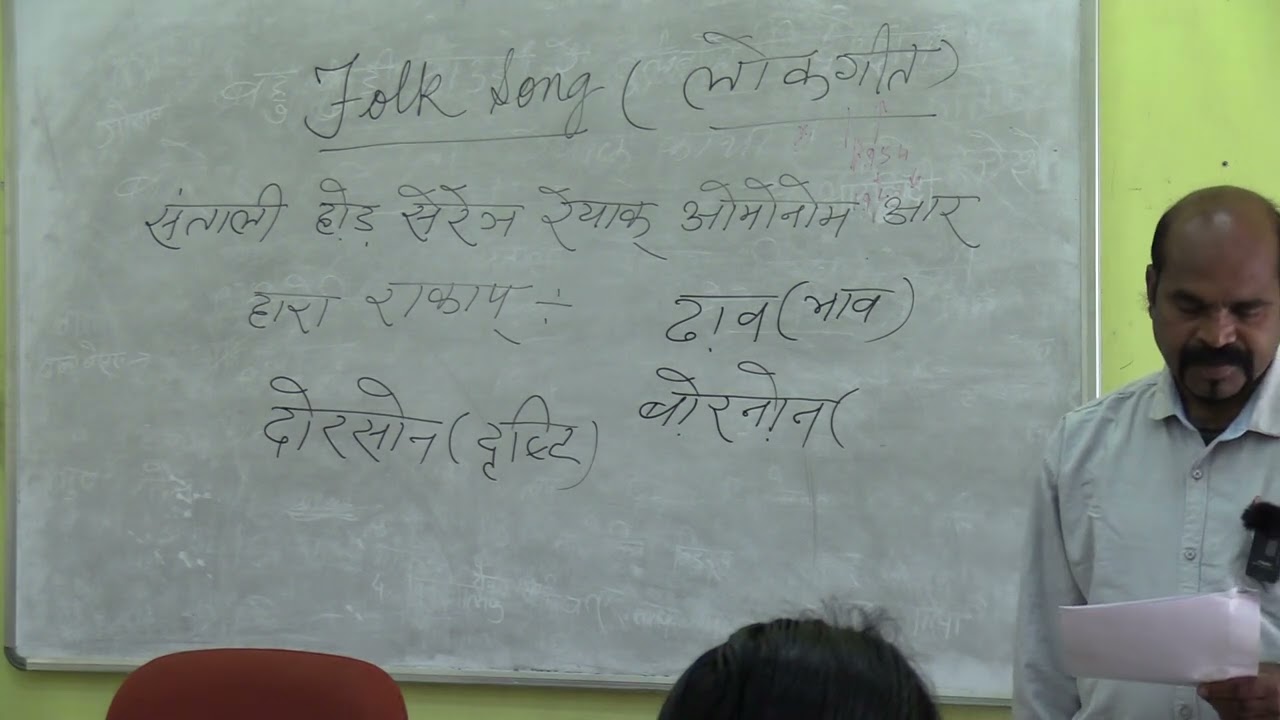 Folk Song ( लोकगीत )
संताली होड़ सेरेञ रेयाक् ओमोनोम आर
हारा राकाप् ÷ ढा़व (भाव)
दोरसोन ( दृष्टि) बो़रनो़न (